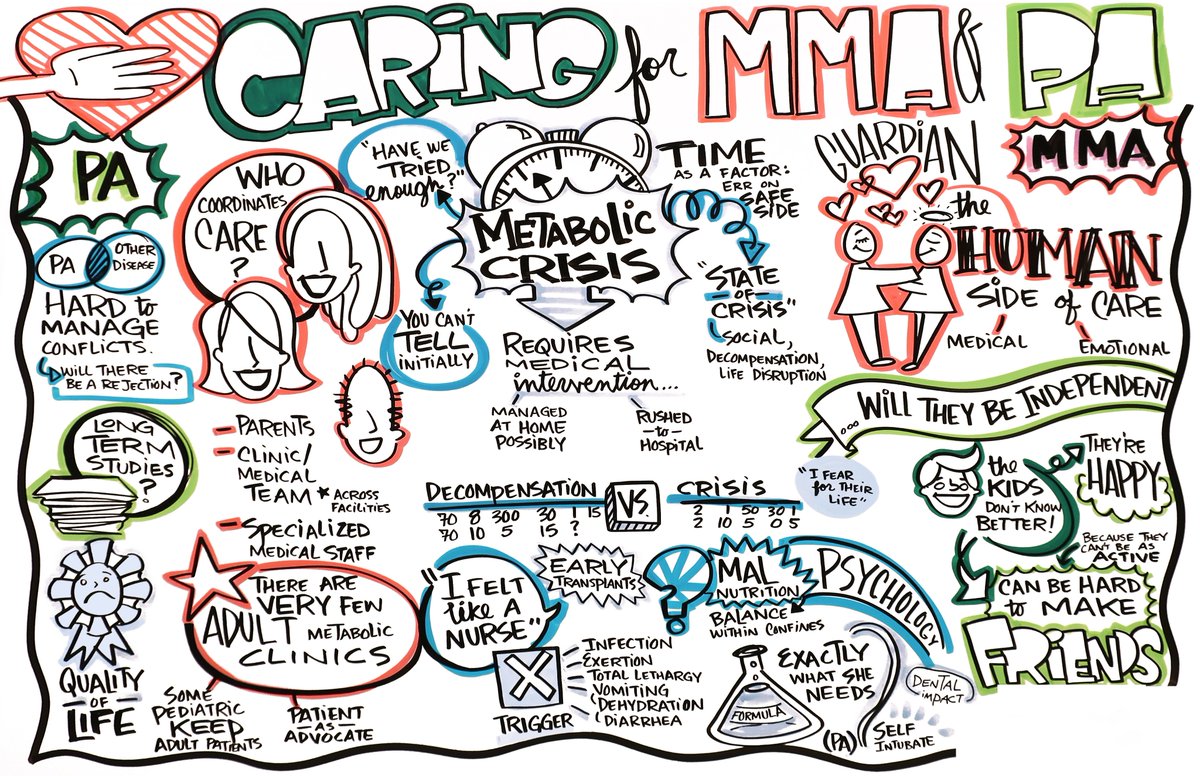 CARING for MMA & PA
PA
PA
OTHER
DISEASE
HARD to
MANAGE
CONFLICTS.
WILL THERE
BE A REJECTION?
LONG
TERM
STUDIES
?
QUALITY
OF
LIFE
WHO
COORDINATES
CARE
?
PARENTS
CLINIC/
MEDICAL
TEAM * ACROSS
FACILITIES
SPECIALIZED
MEDICAL STAFF
THERE ARE
VERY FEW
ADULT METABOLIC
CLINICS
SOME
PEDIATRIC
KEEP
ADULT PATIENTS
PATIENT
AS
ADVOCATE
"HAVE WE
TRIED
enough?"
METABOLIC
CRISIS
YOU CAN'T
TELL
INITIALLY
REQUIRES
MEDICAL
intervention...
MANAGED
AT HOME
POSSIBLY
RUSHED
to
HOSPITAL
TIME
AS A FACTOR:
ERR ON
SAFE
SIDE
"STATE
OF
CRISIS"
SOCIAL,
DECOMPENSATION,
LIFE DISRUPTION
DECOMPENSATION VS. CRISIS
70 8 300 30 1 15
70 10 5 15 ?
2 1 50 30 1
2 10 5 0 5
"I FEAR
for THEIR
LIFE"
"I FELT
like A
NURSE"
EARLY
TRANSPLANTS
?
MAL
NUTRITION
BALANCE
WITHIN CONFINES
PSYCHOLOGY
X
TRIGGER
INFECTION
EXERTION
TOTAL LETHARGY
VOMITING
DEHYDRATION
DIARRHEA
FORMULA
EXACTLY
WHAT SHE
NEEDS
(PA)
DENTAL
IMPACT
SELF
INTUBATE
GUARDIAN
MMA
the
HUMAN
SIDE of CARE
MEDICAL
EMOTIONAL
...WILL THEY BE INDEPENDENT
the
KIDS
DON'T KNOW
BETTER!
THEY'RE
HAPPY
BECAUSE THEY
CAN'T BE AS
ACTIVE
CAN BE HARD
to MAKE
FRIENDS